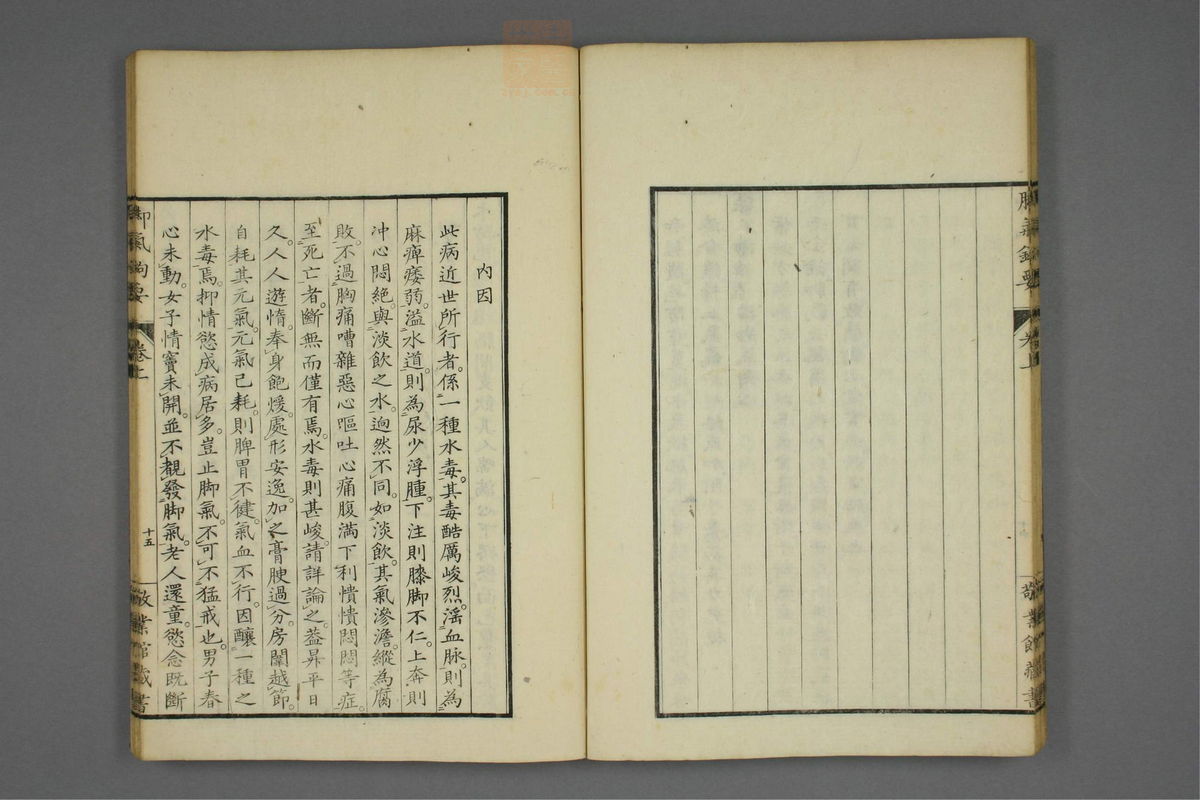 脚氣鉤要
卷上
敬業館藏書
內因
此病近世所行者。係一種水毒。其毒酷厲峻烈。淫血脉。則為
麻痺痿弱。溢水道。則為尿少浮腫。下注則膝脚不仁。上奔則
冲心悶絶。與淡飲之水。逈然不同。如淡飲。其氣滲澹。縱為腐
敗。不過胸痛嘈雜惡心嘔吐心痛腹滿下利憒憒悶悶等症。
至死亡者。斷無而僅有焉。水毒則甚峻。請詳論之。蓋昇平日
久。人人遊惰。奉身飽煖。處形安逸。加之膏腴過分。房闈越節。
自耗其元氣。元氣已耗。則脾胃不健。氣血不行。因釀一種之
水毒焉。抑情慾成病居多。豈止脚氣。不可不猛戒也。男子春
心未動。女子情竇未開。並不覩發脚氣。老人還童。慾念既斷
脚氣鉤要
卷上
十五
敬業館藏書